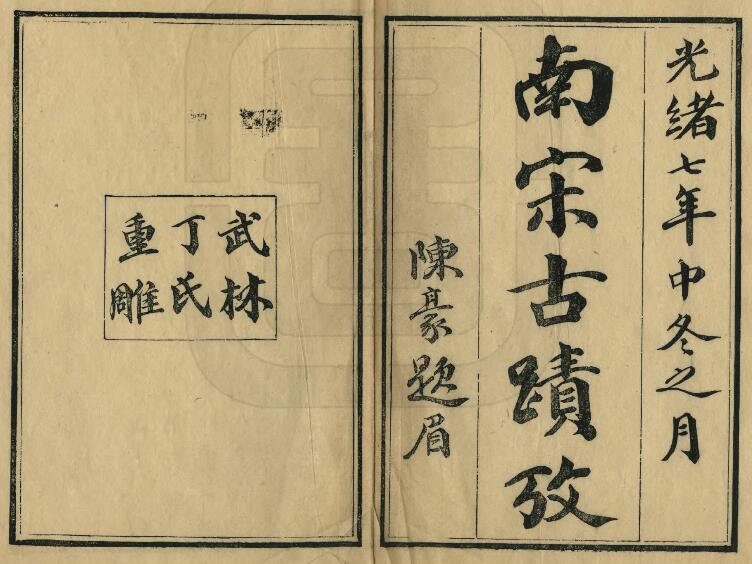 光緒七年中冬之月
南宋古蹟攷
陳豪題眉
武林
丁氏
重雕